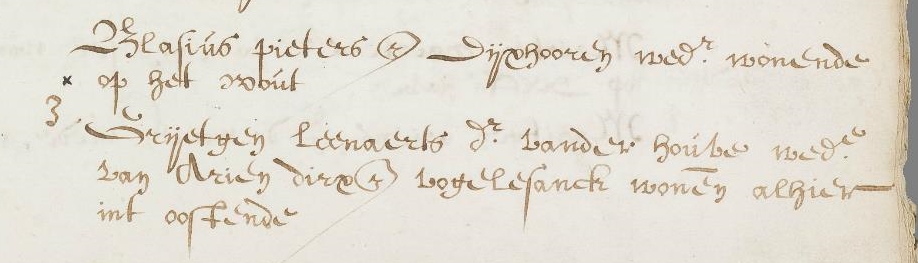 Blasius pieters Dijxhooren wedr. wonende
× op het wout
3 Grijetgen Leenaerts dr. vander houve wede.
van Arien dirx vogelesanck wonen alhier
int oostende